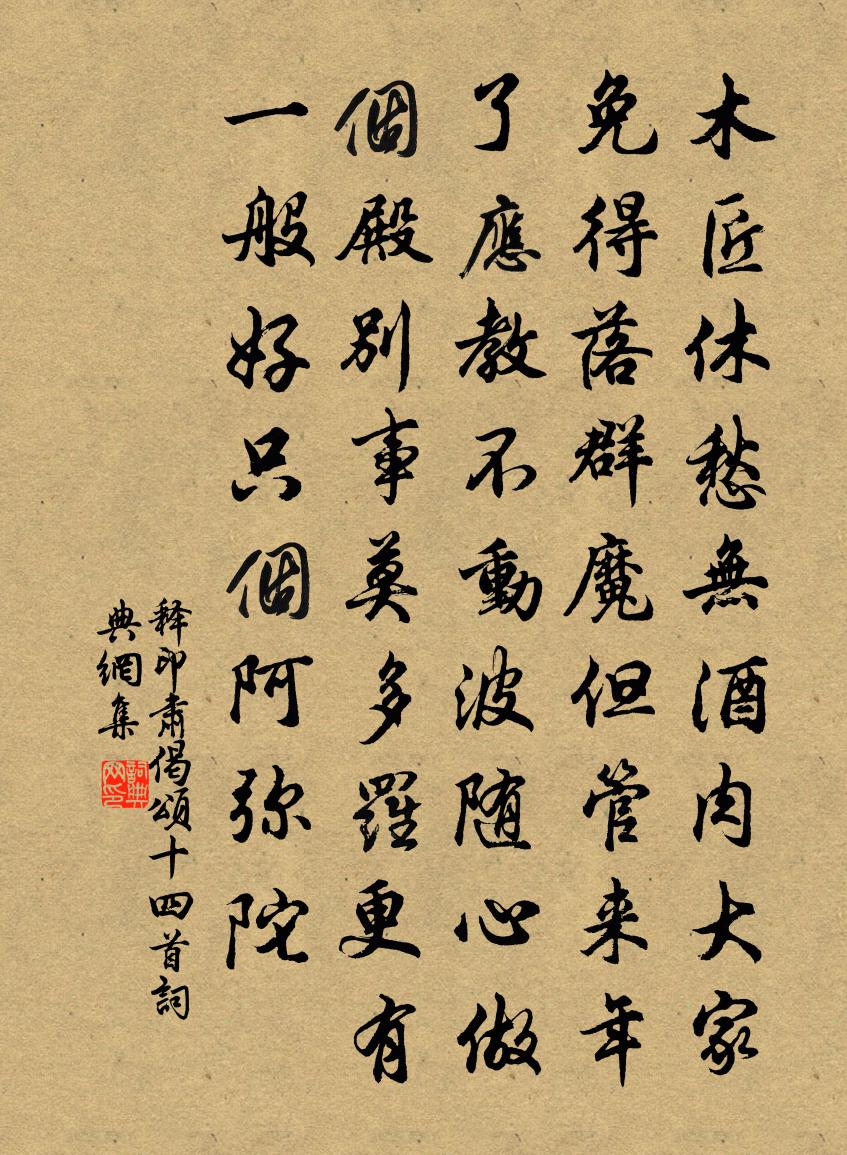 木匠休愁無酒肉大家
免得落群魔但管来年
了應教不動波随心做
個殿別事莫多羅更有
一般好只個阿弥陀
释印肃偈頌十四首詞
典網集
詞典
网印